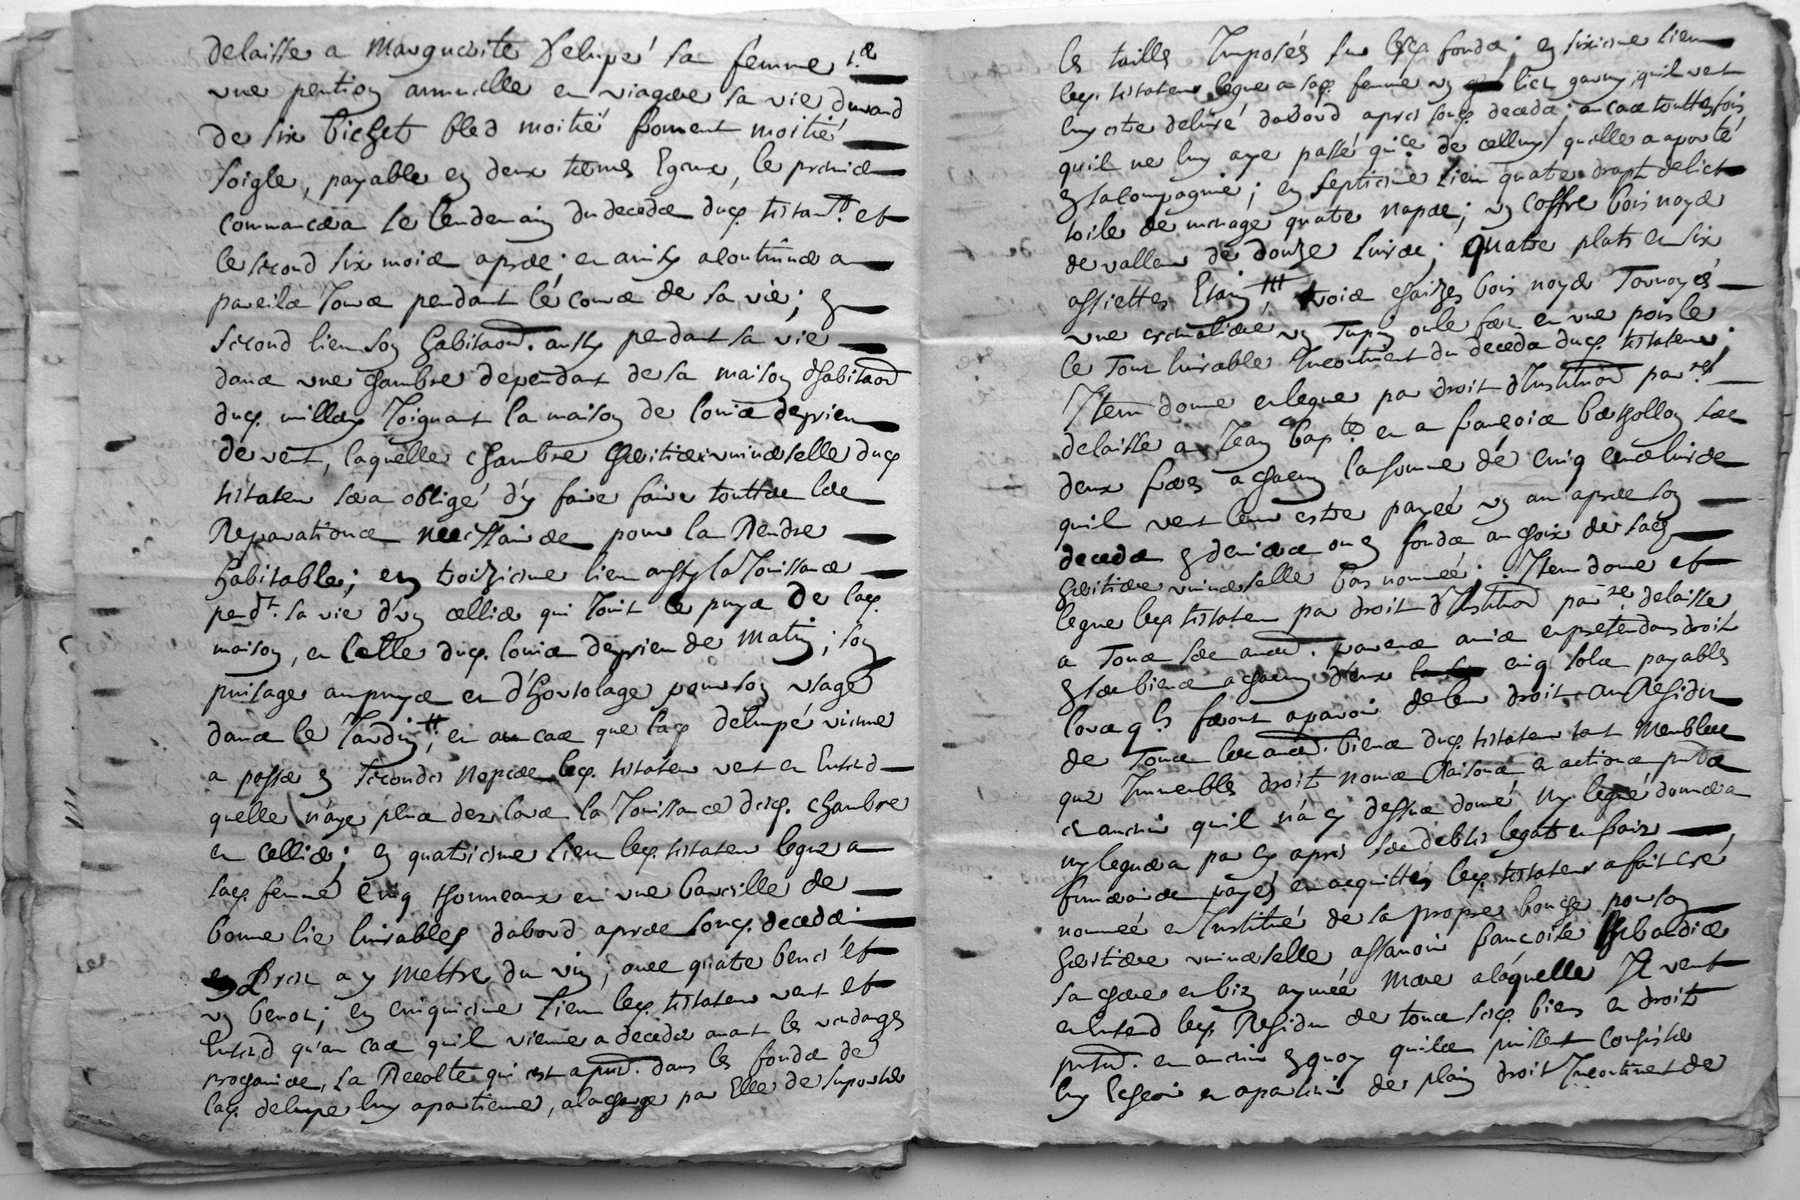 delaisse a Marguerite Delupé sa femme 1.e
une pention annuelle en viagere sa vie durand
de six bichet bled moitié froment moitié
soigle, payable en deux termes Egaux, le premier
commancera le lendemain du decedz dud. testatt. et
le second six mois apres; en ainsy a continuer a
pareils Jours pendant le cours de sa vie; en
second lieu son habitaon. aussy pendant sa vie
dans une chambre dependant de sa maison d'habitaon
dud. Joignant la maison de Louis deprieu
de vent, laquelle chambre heritiere universelle dud.
testateur sera obligé d'y faire faire touttes les
Reparations necessaires pour la Rendre
habitable; en troizieme lieu aussy la Jouissance
pendt. sa vie d'un cellier qui Joint le puys de lad.
maison, en celle dud. Louis deprieu de matin; son
puisage au puys en d'hortolage pour son usage
dans le Jardin; en au cas que lad. delupé vienne
a passer en secondes nopces led. testateur veut en Entend
quelle n'aye plus dez lors la Jouissance desd. chambre
en cellier; en quatrieme lieu led. testateur legue a
sad. femme cinq thonneaux en une barville de
bonne lie livrables dabord apres sond. decedz
a y mettre du vin; avec quatre bencs et
un benon; en cinquieme lieu led. testateur veut et
Entend qu'au cas quil vienne a deceder avant les vendanges
prochaines, la Recolte qui est a prend. dans les fonds de
lad. delupé luy apartienne, a la charge par Elle de suporter
les tailles Imposés sur lesd. fonds; en sixieme lieu
led. testateur legue a sad. femme un lict garny quil veut
luy estre delivré dabord apres sond. decedz; au cas touttesfois
quil ne luy aye passé quice. de celluy quelle a aporté
en sa compagnie; en septieme lieu quatre drapt de lict
toile de menage quatre napes; un coffre bois noyer
de valleur de douze livres; quatre plats en six
assiettes Etain, trois chaizes bois noyer Tornoyés
une cremaliere un Tupin oule fer en une poisle
le Tout livrable Incontinent du decedz dud. testateur;
Item donne en legue par droit d'Instituon par.res
delaisse a Jean Bapte. en a françois Berthollon ses
deux freres a chacun la somme de cinq livres
quil veut leur estre payée un an apres son
decedz en deniers ou en fonds au choix de sad.
heritiere universelle bas nommée; Item donne et
legue led. testateur par droit d'Instituon par.re delaisse
a Tous ses aues. parens amis en pretendans droit
en ses biens a chacun d'eux cinq sols payables
lors qls. feront aparoir de leur droit. Au Residu
de Tous les aues. biens dud. testateur tant Meubles
que Immeubles droit noms Raisons en actions pnds
en auenir quil n'a cy dessus donné ny legué donnera
ny leguera par cy apres ses debtes legats en frais
funeraires payés en acquittés led. testateur a fait créé
nommée en Institué de sa propre bouche pour son
heritiere universelle assavoir francoise
sa chere en bien aymée Mere a laquelle Il veut
en Entend led. Residu de tous sesd. biens en droit
pntd. en auenir en quoy quils puissent Consister
luy Echeoir en apartenir de plain droit Incontinent de